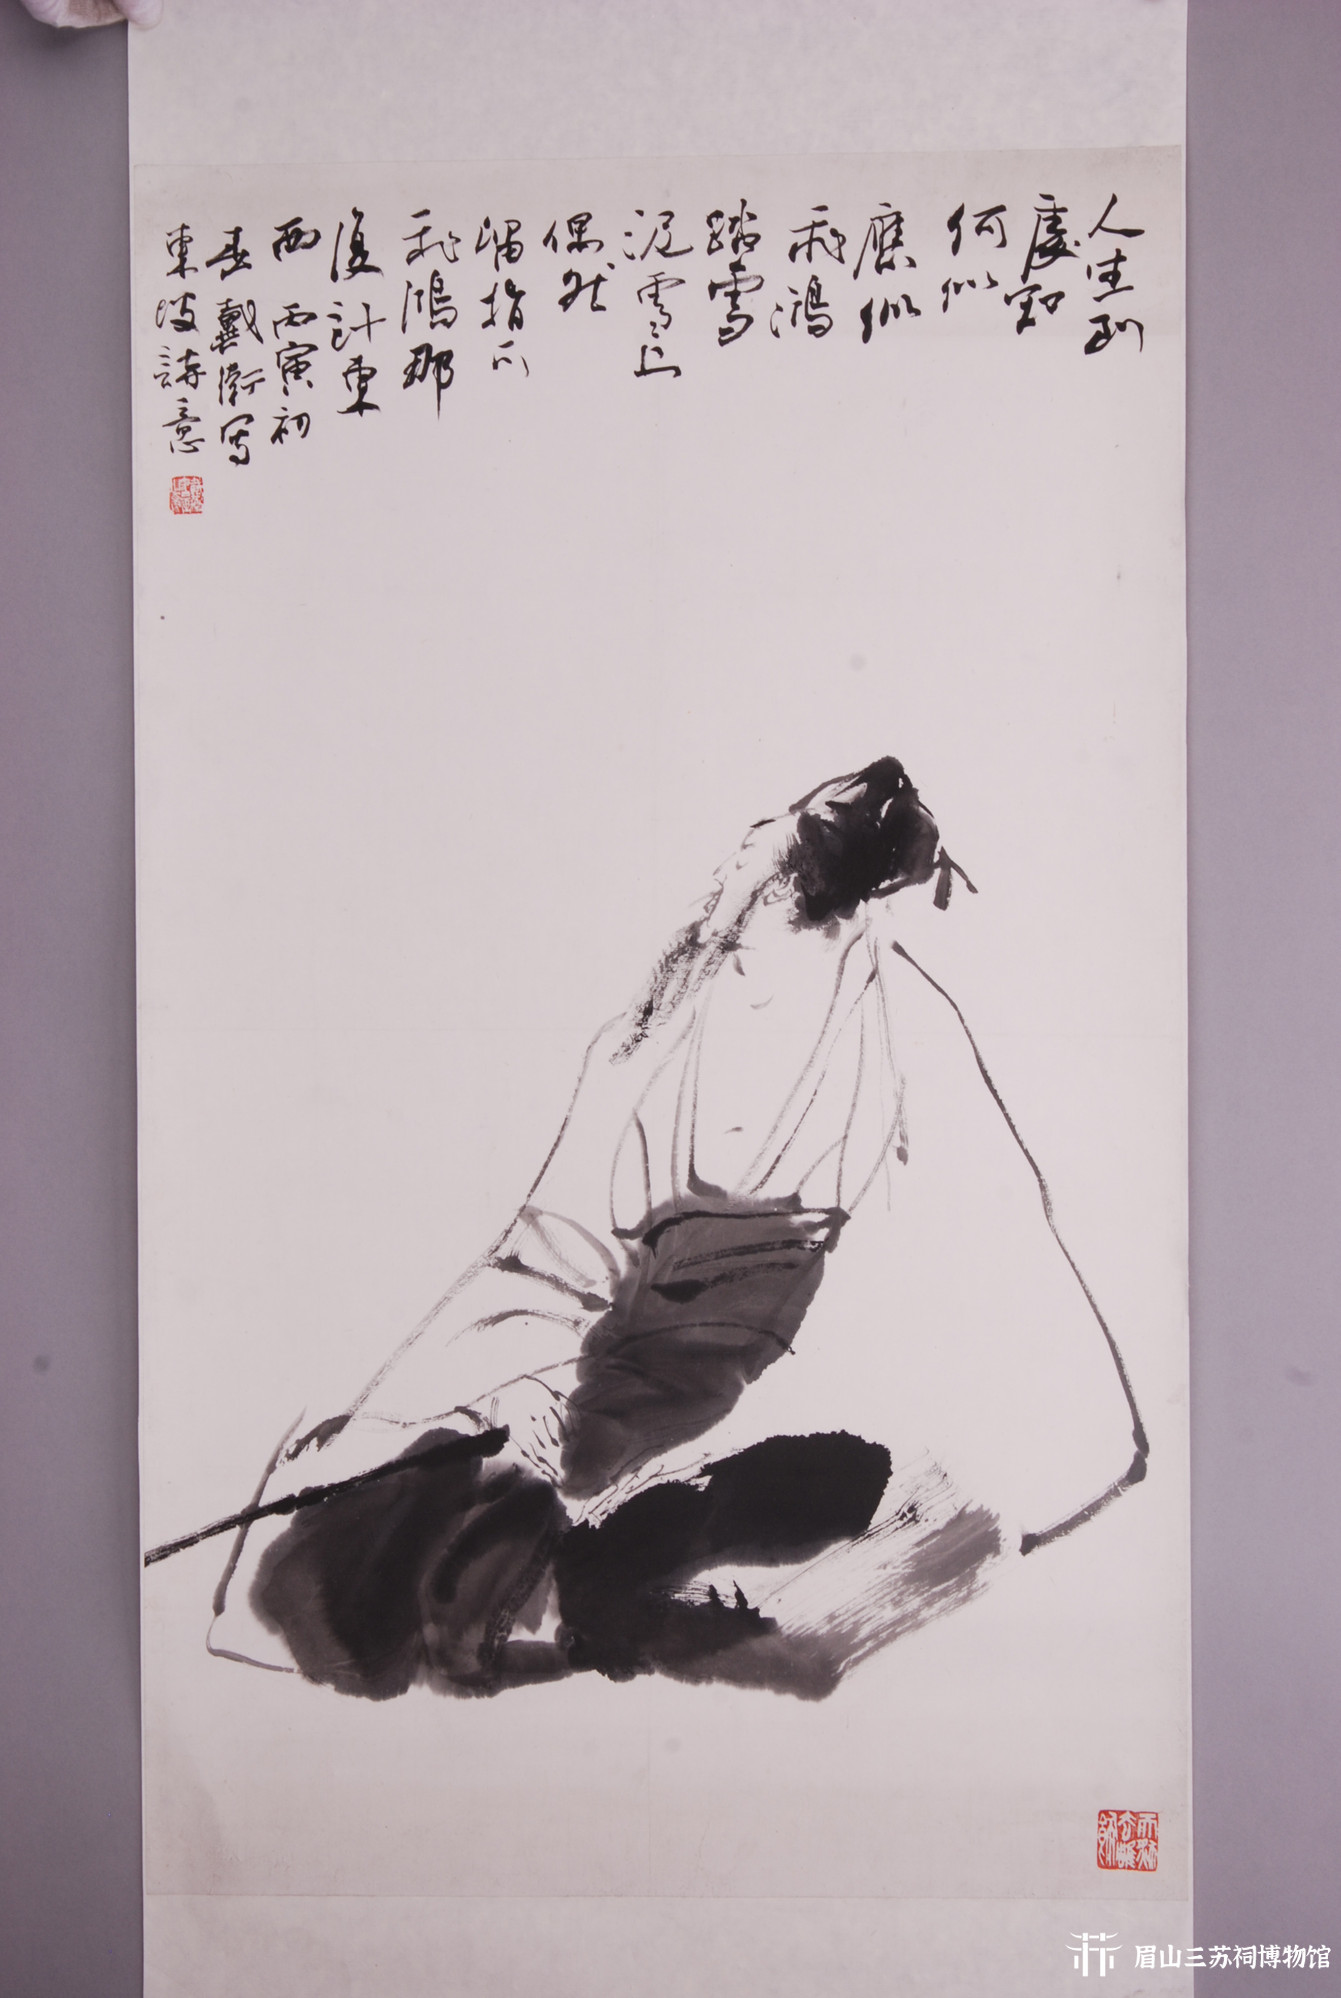 人生到
處知
何似
應似
飛鴻
踏雪
泥雪〻上
偶然
留指爪
飛鴻那
復計東
西 丙寅初
春戴衛寫
東坡詩意
眉山三苏祠博物馆